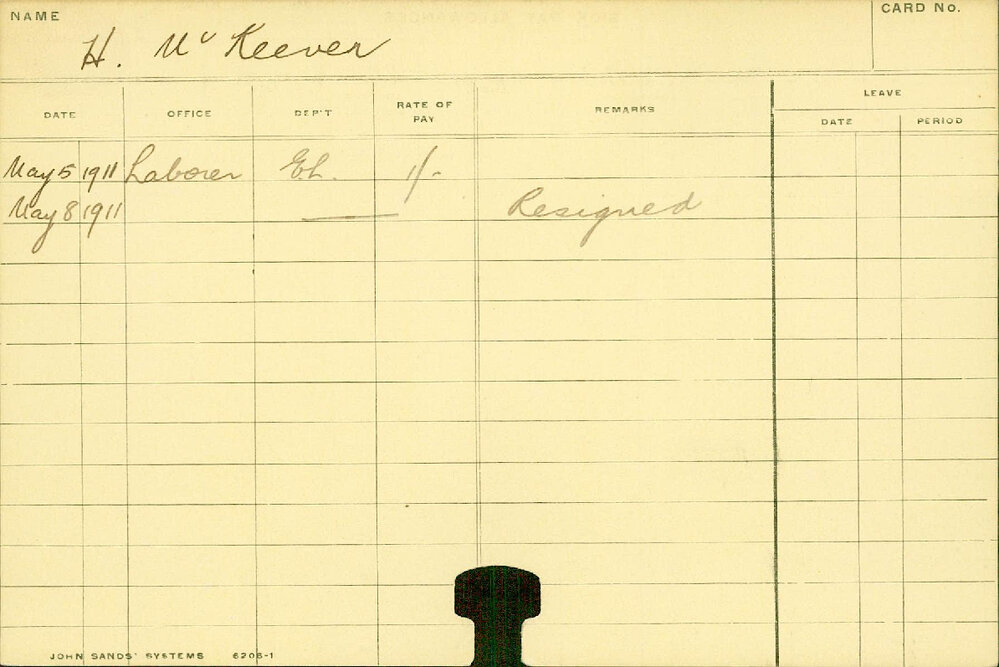 NAME
H. McKeever
CARD No.
DATE OFFICE DEP'T RATE OF PAY REMARKS LEAVE
DATE PERIOD
May 5 1911 Laborer E.L. 1/-
May 8 1911 — Resigned
JOHN SANDS' SYSTEMS 6206-1